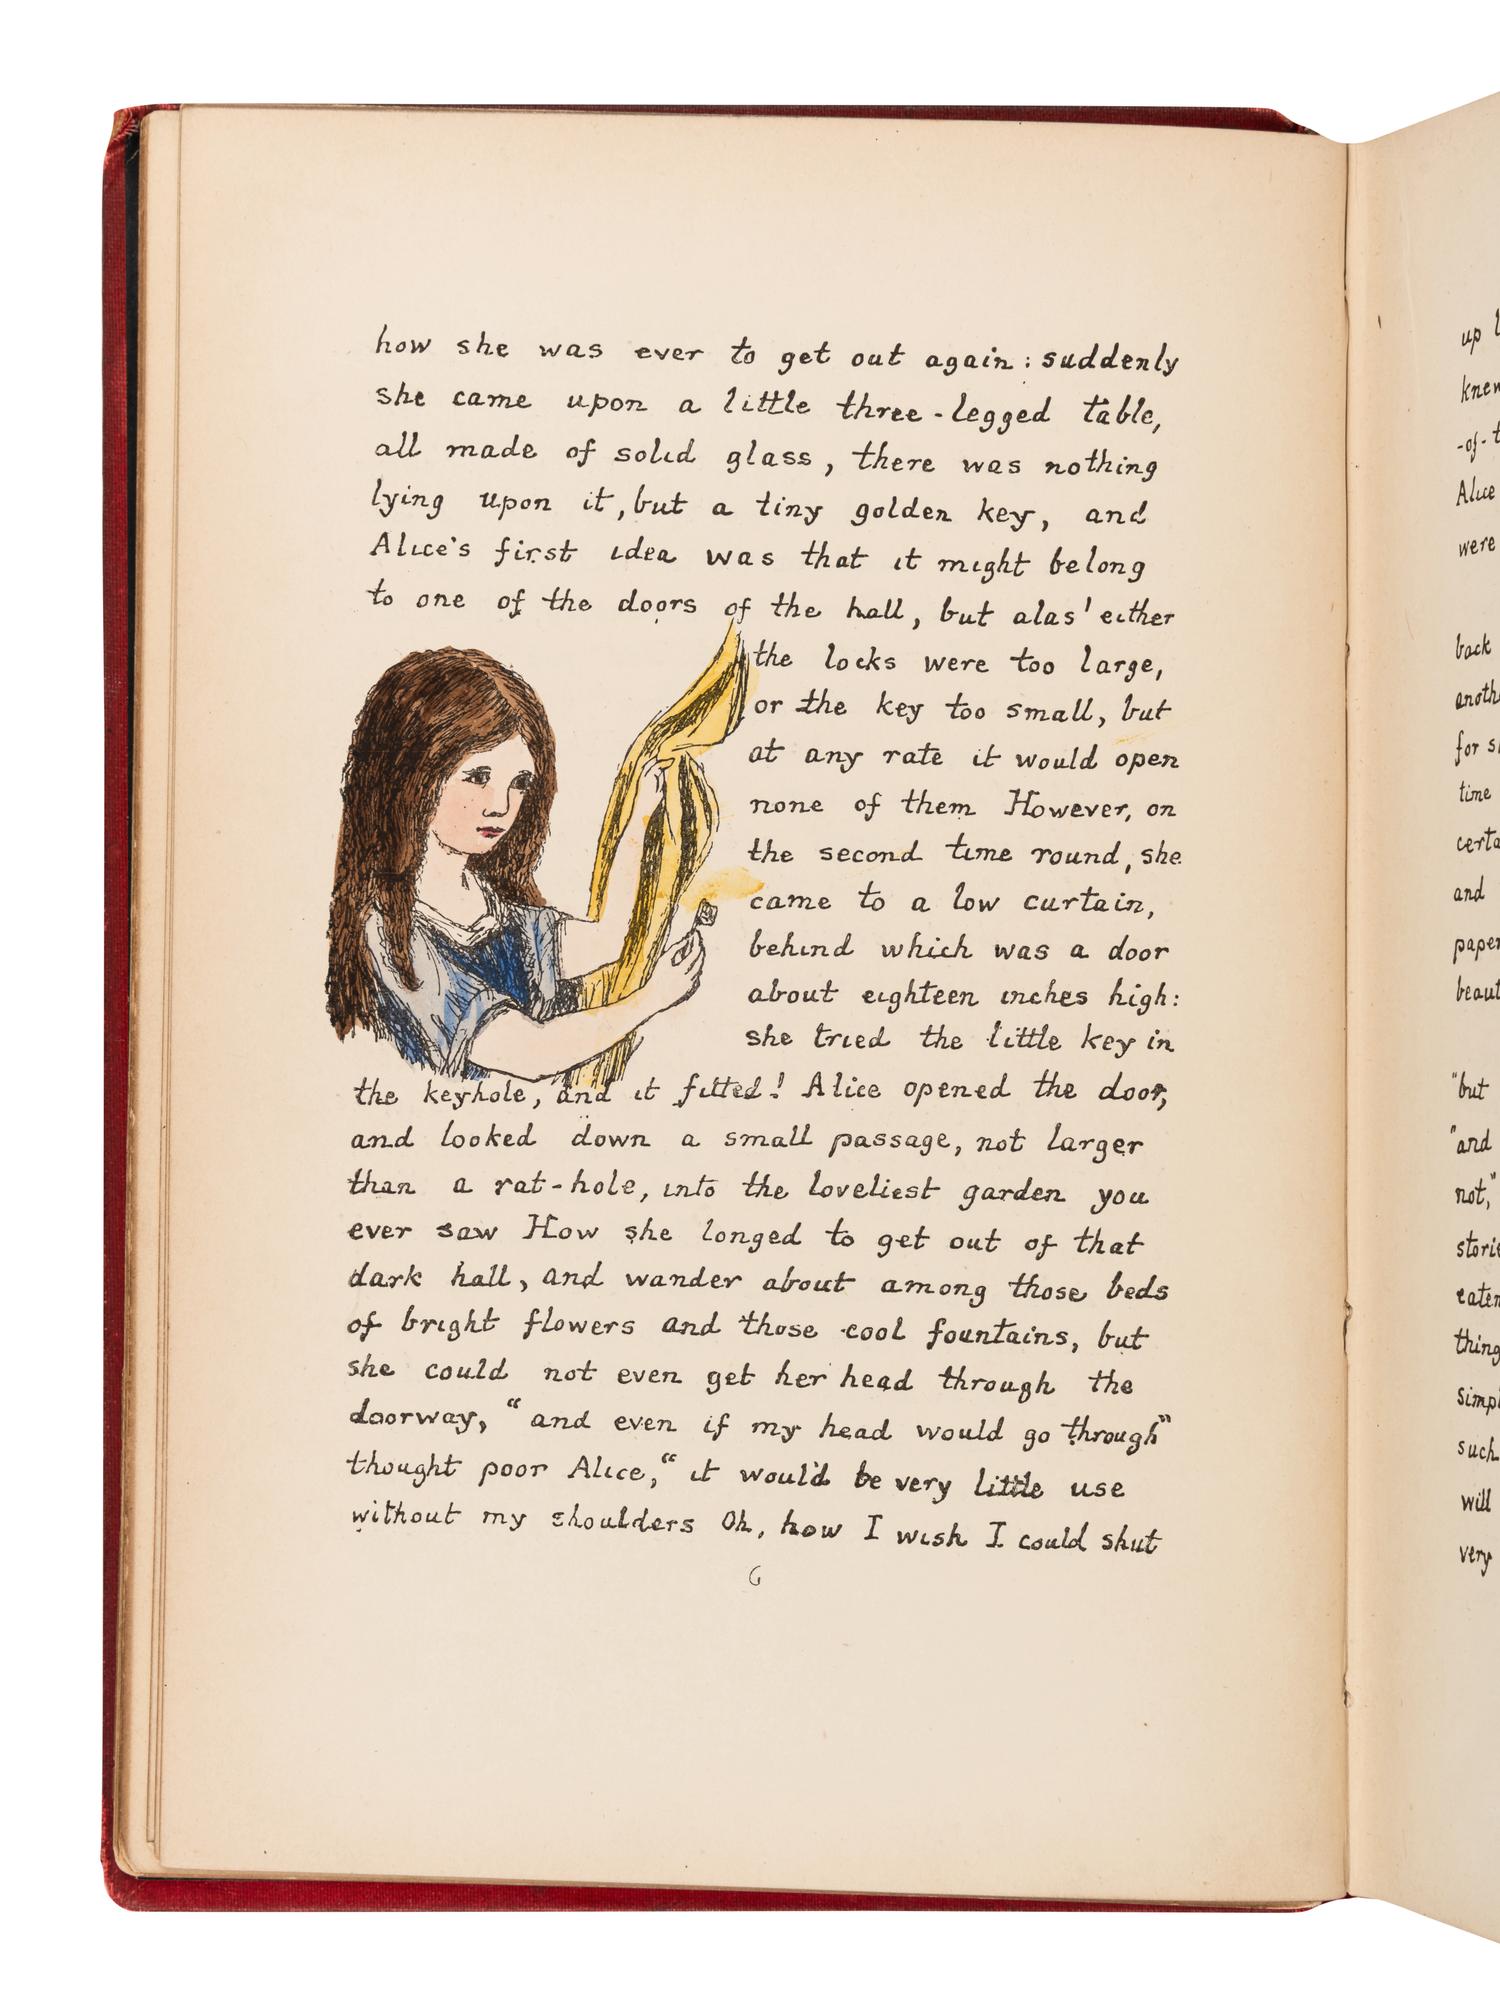 how she was ever to get out again: suddenly
she came upon a little three-legged table,
all made of solid glass, there was nothing
lying upon it, but a tiny golden key, and
Alice's first idea was that it might belong
to one of the doors of the hall, but alas! either
the locks were too large,
or the key too small, but
at any rate it would open
none of them However, on
the second time round, she
came to a low curtain,
behind which was a door
about eighteen inches high:
she tried the little key in
the keyhole, and it fitted! Alice opened the door,
and looked down a small passage, not larger
than a rat-hole, into the loveliest garden you
ever saw How she longed to get out of that
dark hall, and wander about among those beds
of bright flowers and those cool fountains, but
she could not even get her head through the
doorway, "and even if my head would go through"
thought poor Alice, "it would be very little use
without my shoulders Oh, how I wish I could shut
6
up
knew
-of-
Alice
were
back
for
time
and
paper
"but
"and
not,"
such
will
very